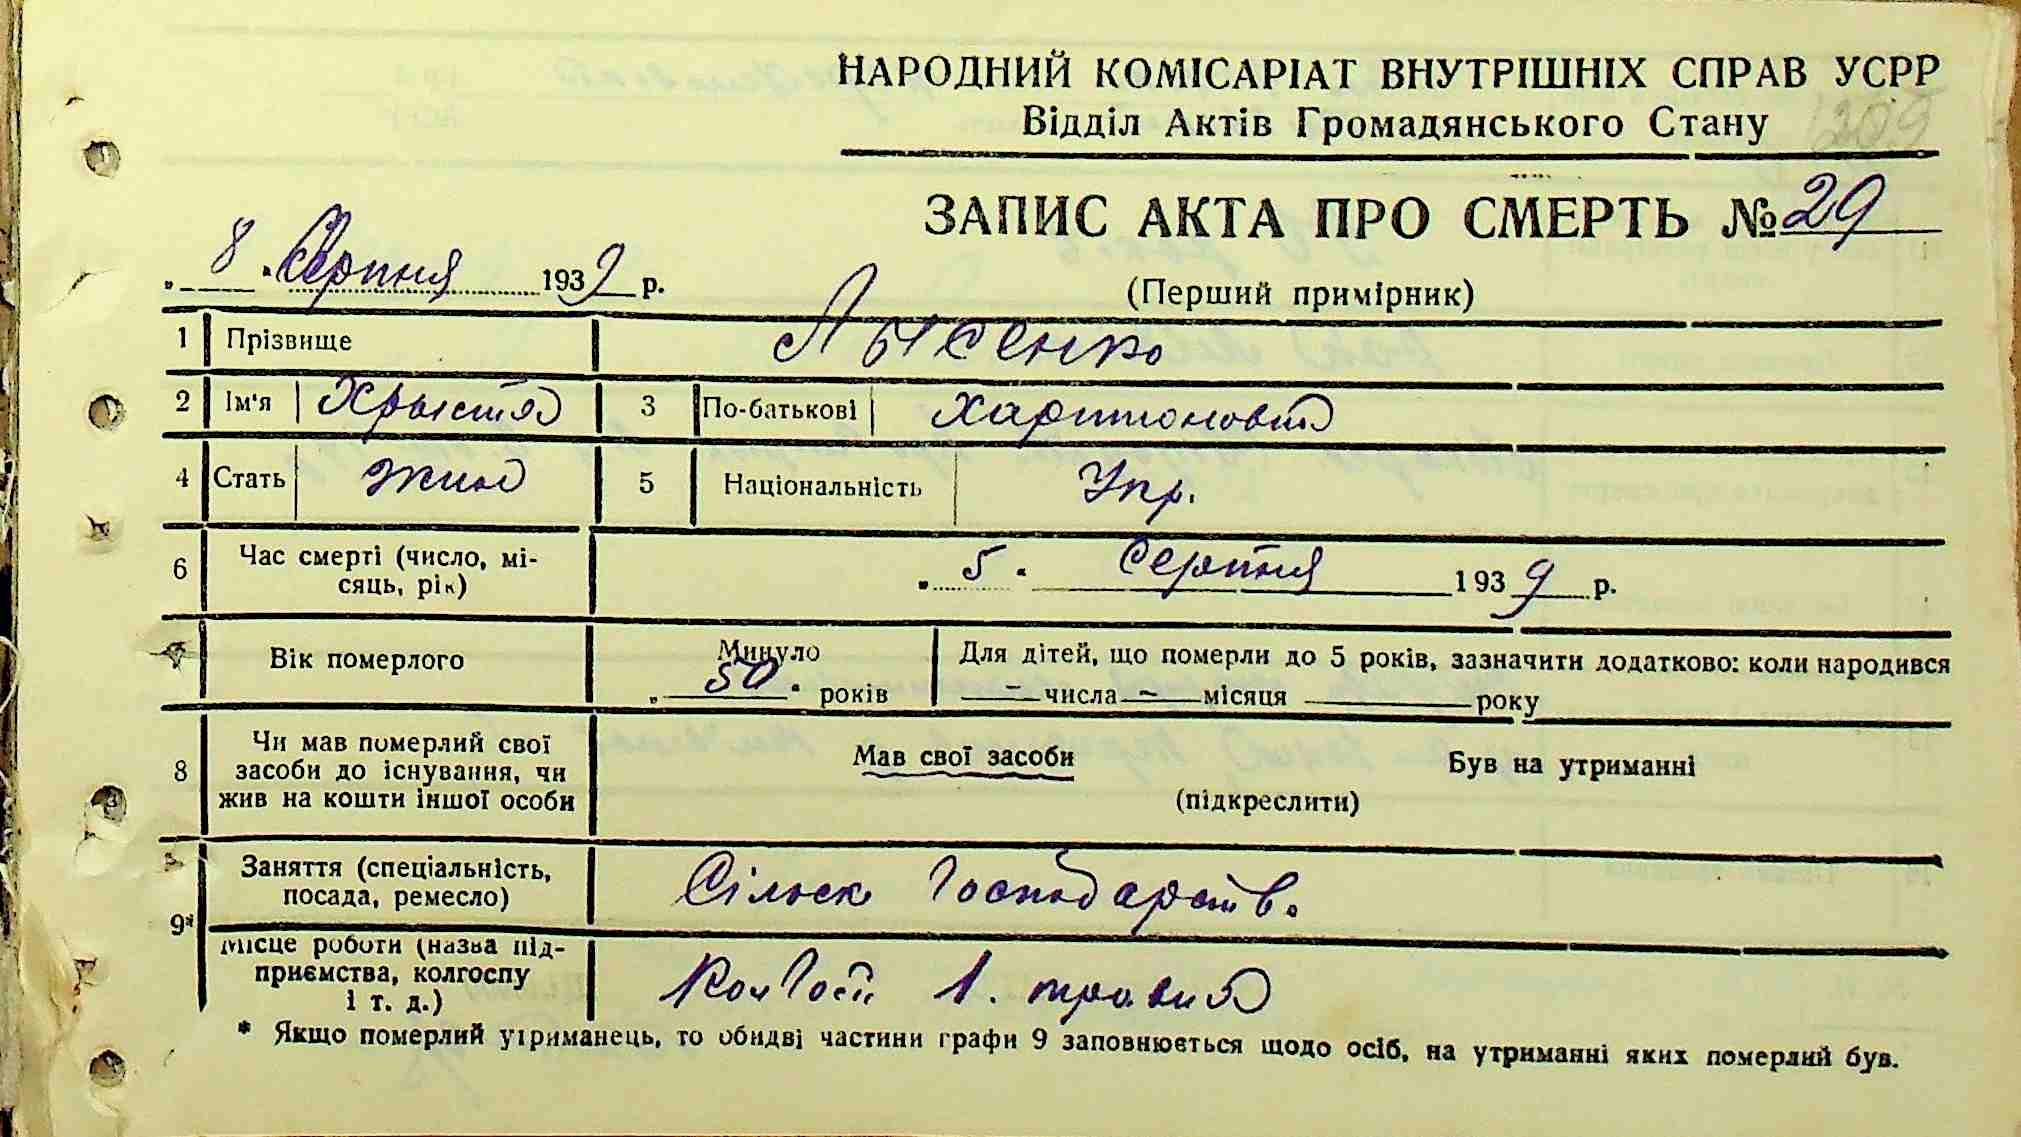 НАРОДНИЙ КОМІСАРІАТ ВНУТРІШНІХ СПРАВ УСРР
Відділ Актів Громадянського Стану
209
ЗАПИС АКТА ПРО СМЕРТЬ № 29
„ 8 " Серпня 1939 р.
(Перший примірник)
1 Прізвище Лысенко
2 Ім'я Хрыстя 3 По-батькові Харитоновна
4 Стать жин 5 Національність Укр.
6 Час смерті (число, мі-
сяць, рік) „ 5 " Серпня 1939 р.
7 Вік померлого Минуло „ 50 " років Для дітей, що померли до 5 років, зазначити додатково: коли народився
— числа — місяця року
8 Чи мав померлий свої
засоби до існування, чи
жив на кошти іншої особи
Мав свої засоби Був на утриманні
(підкреслити)
9* Заняття (спеціальність,
посада, ремесло) Сільск Господарств.
Місце роботи (назва під-
приємства, колгоспу
і т. д.) Колгосп 1. травня
* Якщо померлий утриманець, то обидві частини графи 9 заповнюється щодо осіб, на утриманні яких померлий був.